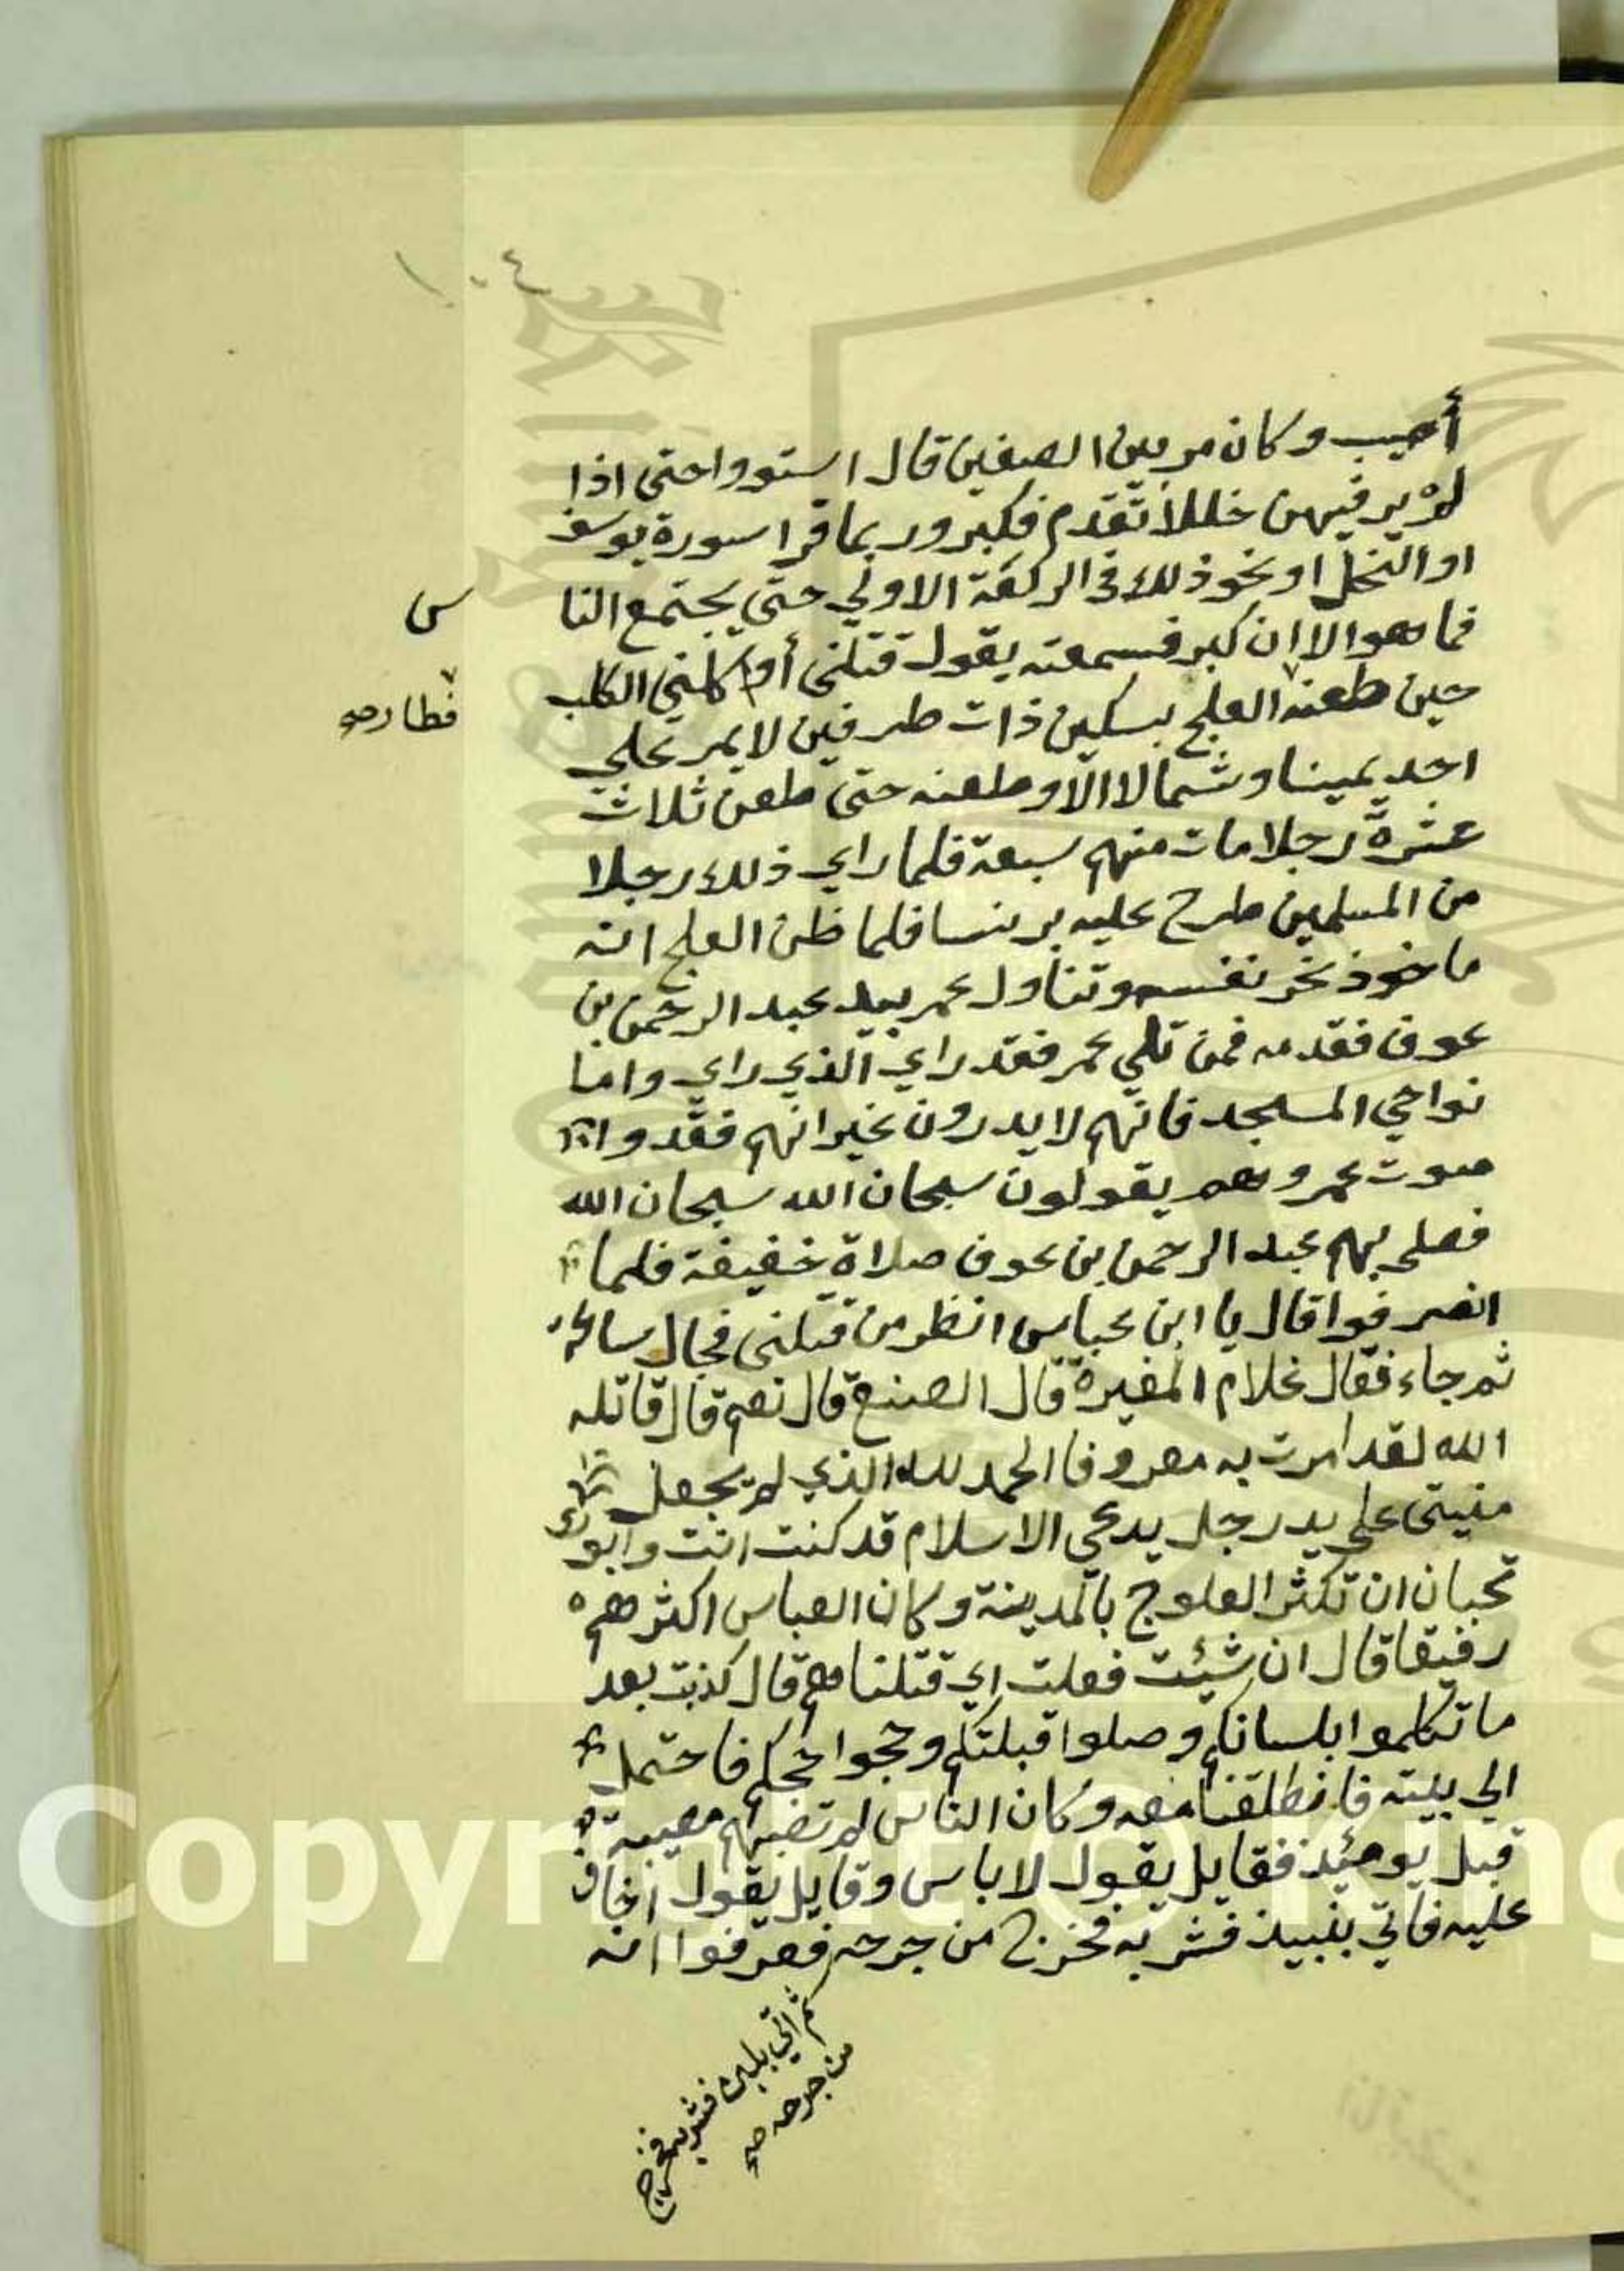 ١٠٤
أصيب وكان مر بين الصفين قال استووا حتى اذا
لم ير فيهن خللا تقدم فكبر وربما قرا سورة يوسف
او النحل او نحو ذلك في الركعة الاولي حتي يجتمع النا
س
فما هو الا ان كبر فسمعته يقول قتلني أو اكلني الكلب
حين طعنه العلج بسكين ذات طرفين لا يمر علي
فطار صح
احد يمينا وشمالا الا وطعنه حتى طعن ثلاث
عشرة رجلا مات منهم سبعة فلما راي ذلك رجلا
من المسلمين طرح عليه برنسا فلما ظن العلج انه
ماخوذ نحر نفسه وتناول عمر بيد عبد الرحمن بن
عوف فقدمه فمن تلي عمر فقد راي الذي راي واما
نواحي المسجد فانهم لا يدرون غير انهم فقدوا
صوت عمر وهم يقولون سبحان الله سبحان الله
فصلى بهم عبد الرحمن بن عوف صلاة خفيفة فلما
انصرفوا قال يا ابن عباس انظر من قتلني فجال ساعة
ثم جاء فقال غلام المغيرة قال الصنع قال نعم قال قاتله
الله لقد امرت به معروفا الحمد لله الذي لم يجعل
منيتى على يد رجل يدعي الاسلام قد كنت انت وابوك
تحبان ان تكثر العلوج بالمدينة وكان العباس اكثرهم
رفيقا قال ان شيئت فعلت اي قتلناهم قال كذبت بعد
ما تكلموا بلسانكم وصلوا قبلتكم وحجوا حجكم فاحتمل
الي بيته فانطلقنا معه وكان الناس لم تصبهم مصيبة
قبل يومئذ فقايل يقول لا باس وقايل يقول اخاف
عليه فاتي بنبيذ فشربه فخرج من جرحه فعرفوا انه
ثم اتي بلبن فشربه فخرج
من جرحه صح
Copyright © King